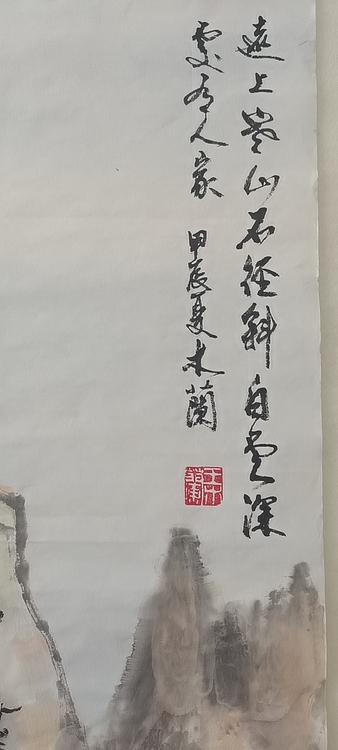 遠上寒山石徑斜白雲深
處有人家 甲辰夏木蘭